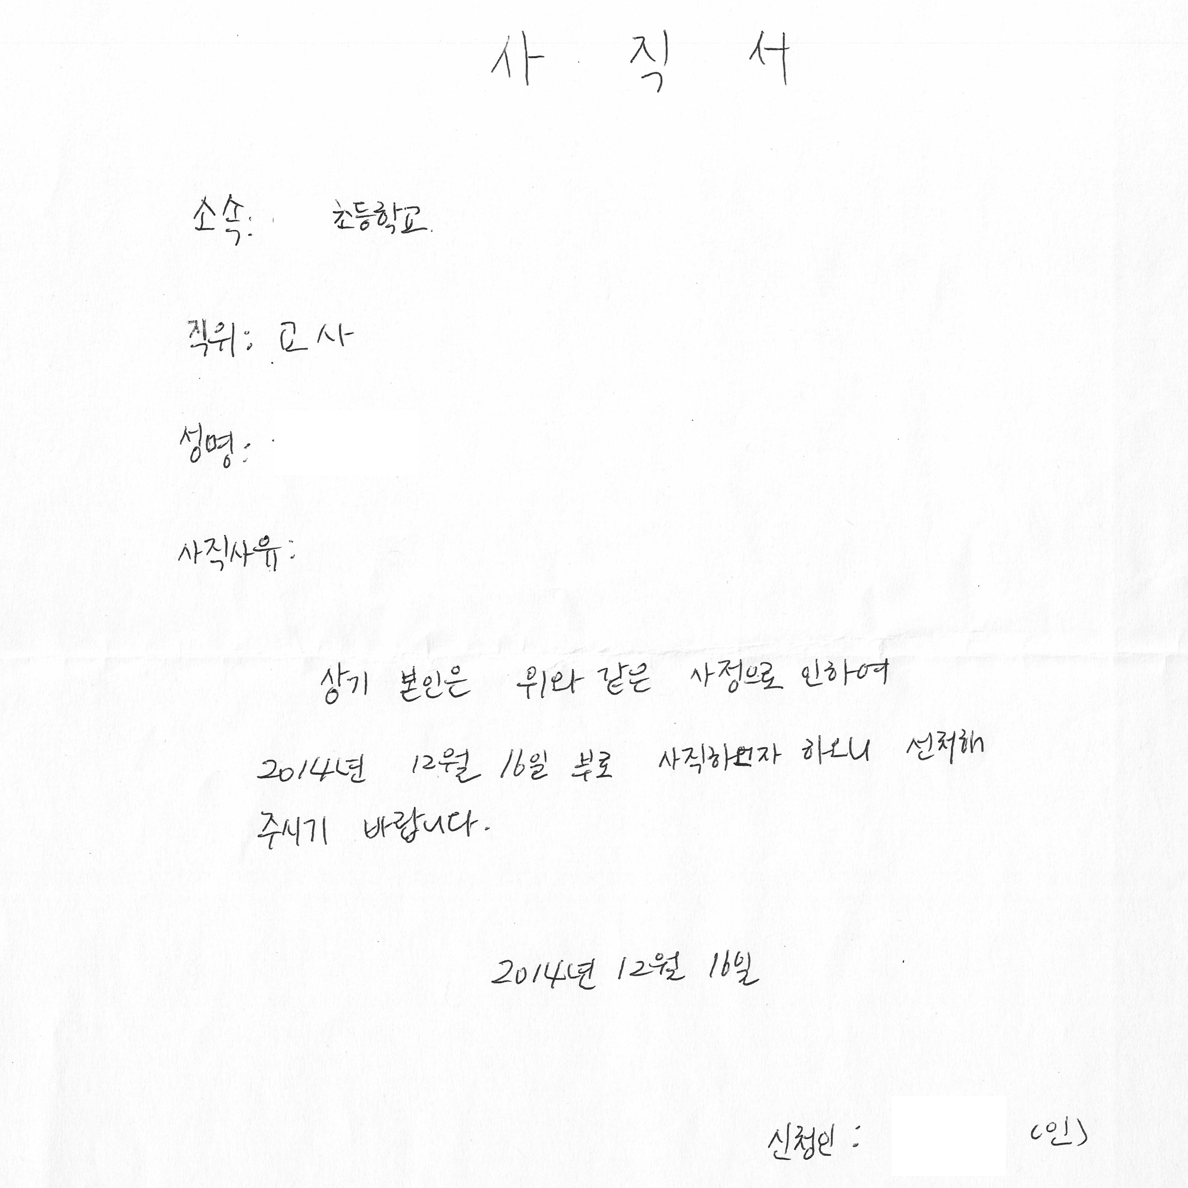 사 직 서
소속: 초등학교
직위: 교사
성명:
사직사유:
상기 본인은 위와 같은 사정으로 인하여
2014년 12월 16일 부로 사직하고자 하오니 선처해
주시기 바랍니다.
2014년 12월 16일
신청인 : (인)